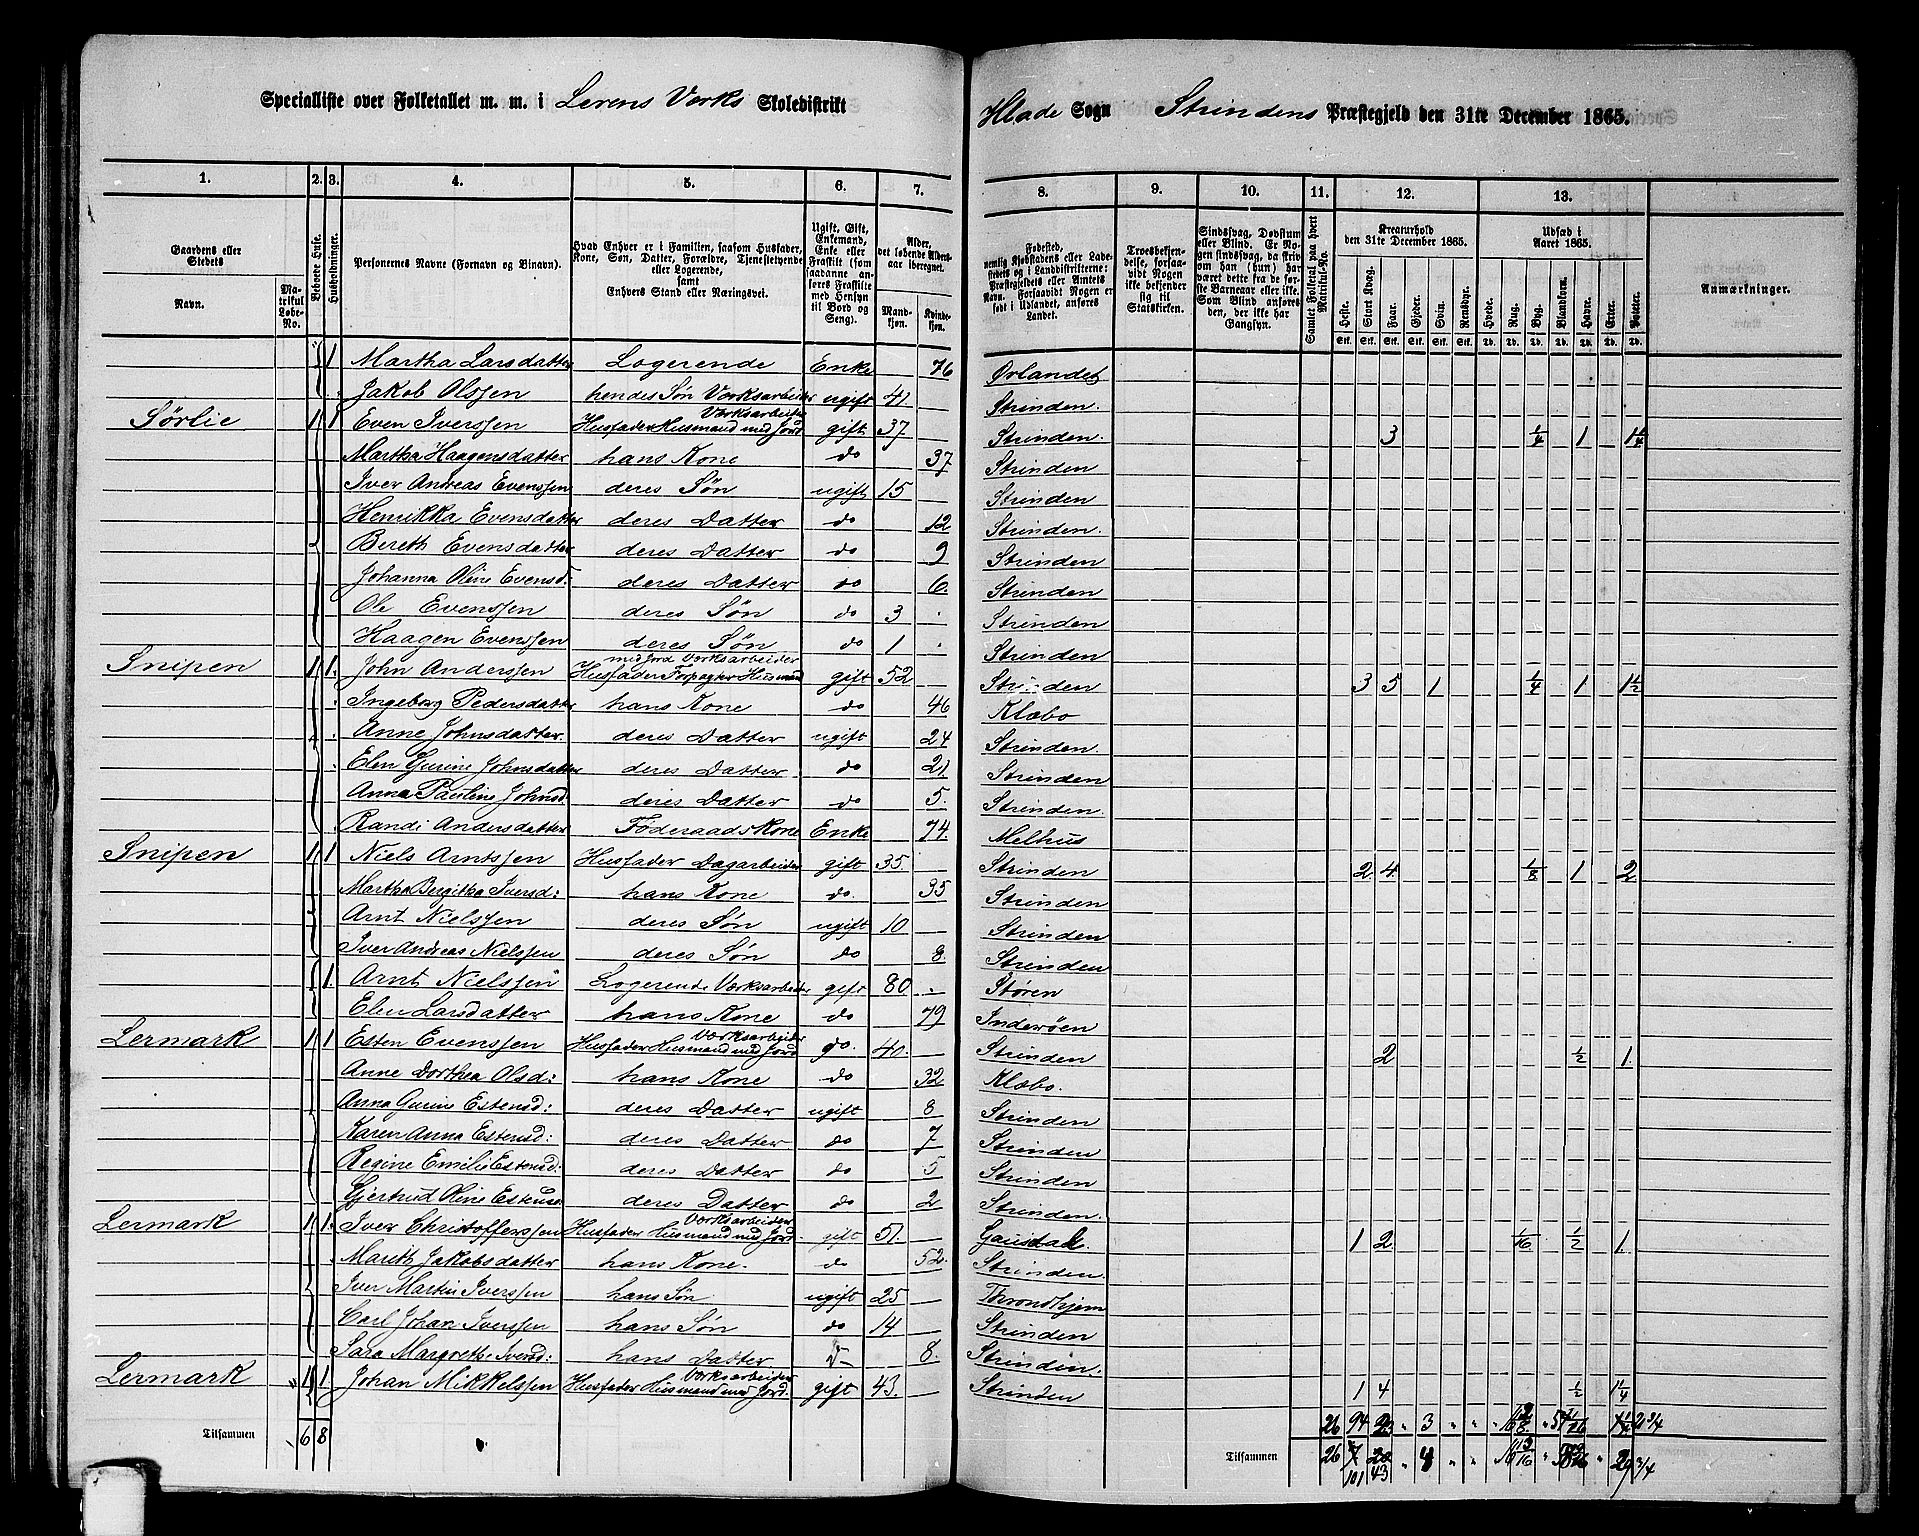 Specialliste over Folketallet m. m. i Lerens Værks Skoledistrikt
Hlade Sogn Strindens Præstegjeld den 31te December 1865.
1. 2. 3. 4. 5. 6. 7. 8. 9. 10. 11. 12. 13.
Gaardens eller Stedets Navn. Matrikul Løbe-No. Beboede Huse. Husholdninger. Personernes Navne (Fornavn og Binavn). Hvad Enhver er i Familien, saasom Husfader, Kone, Søn, Datter, Forældre, Tjenestetyende eller Logerende, samt Enhvers Stand eller Næringsvei. Ugift, Gift, Enkemand, Enke eller Fraskilt (som saadanne anføres Fraskilte med Hensyn til Bord og Seng). Alder, det løbende Aldersaar iberegnet. Mandkjøn. Kvindekjøn.
Fødested, nemlig Kjøbstadens eller Ladestedets og i Landdistrikterne: Præstegjeldets eller Amtets Navn. Forsaavidt Nogen er født i Udlandet, anføres Landet. Troesbekjendelse, forsaavidt Nogen ikke bekjender sig til Statskirken. Sindssvag, Døvstum eller Blind. Er Nogen sindssvag, da hvis han (hun) har været dette fra de første Barneaar eller ikke. Som Blind anføres den, der ikke har Gangsyn. Samlet Folketal paa hvert Matrikul-No. Kreaturhold den 31te December 1865. Heste. Stort Kvæg. Faar. Gjeder. Svin. Rensdyr. Udsæd i Aaret 1865. Hvede. Rug. Byg. Blandkorn. Havre. Erter. Poteter. Anmærkninger.
1 Martha Larsdatter Logerende Enke 76 Ørlandet
Jakob Olssen hendes Søn Værksarbeider ugift 41 Strinden.
Sørlie 1 1 Even Iverssen Husfader Husmand med Jord Værksarbeider gift 37 Strinden. 3 1/4 1 1 1/4
Martha Haagensdatter hans Kone do 37 Strinden
Iver Andreas Evenssen deres Søn ugift 15 Strinden
Henrikka Evensdatter deres Datter do 12 Strinden.
Bereth Evensdatter deres Datter do 9 Strinden
Johanna Oline Evensd: deres Datter do 6. Strinden
Ole Evenssen deres Søn do 3 Strinden
Haagen Evenssen deres Søn do 1 Strinden
Snipen 1 1. John Anderssen Husfader Forpagter Husmand med Jord Værksarbeider gift 52 Strinden 3 5 1 1/4 1 1 1/2
Ingeborg Pedersdatter hans Kone do 46 Klæbo
Anne Johnsdatter deres Datter ugift 24 Strinden
Elen Gurine Johnsdatter deres Datter do 21 Strinden
Anna Pauline Johnsd deres Datter do 5. Strinden
Randi Andersdatter Føderaadskone Enke 74 Melhus
Snipen 1 1 Niels Arntssen Husfader Dagarbeider gift 35. Strinden 2 4 1/8 1 2
Martha Bergitha Iversd: hans Kone do. 35 Strinden
Arnt Nielssen deres Søn ugift 10 Strinden
Iver Andreas Nielssen deres Søn do 8. Strinden
1. Arnt Nielssen Logerende Værksarbeider gift 80 Støren
Elen Larsdatter hans Kone do 79 Inderøen
Lermark 1 1 Esten Evenssen Husfader Husmand med Jord Værksarbeider do. 40. Strinden 2 1/2 1.
Anne Dorthea Olsd: hans Kone do 32 Klæbo.
Anna Gurine Estensd: deres Datter ugift 8 Strinden
Karen Anna Estensd: deres Datter do 7 Strinden
Regine Emilie Estensd: deres Datter do 5 Strinden
Gjertrud Oline Estensd deres Datter do 2 Strinden.
Lermark 1 1. Iver Christofferssen Husfader Husmand med Jord Værksarbeider gift 51. Gausdal 1 2 1/16 1/2 1.
Marith Jakobsdatter hans Kone. do 52. Strinden.
Iver Martin Iverssen hans Søn ugift 25 Throndhjem
Carl Johan Iverssen hans Søn do 14 Strinden
Sara Margrethe Iversd: hans Datter D- 8. Strinden.
Lermark 1 1 Johan Mikkelssen Husfader Husmand med Jord. Værksarbeider gift 43. Strinden 1 4 1/2 1 1/4
Tilsammen 6 8
26 94 3
Tilsammen 26 4
101 43